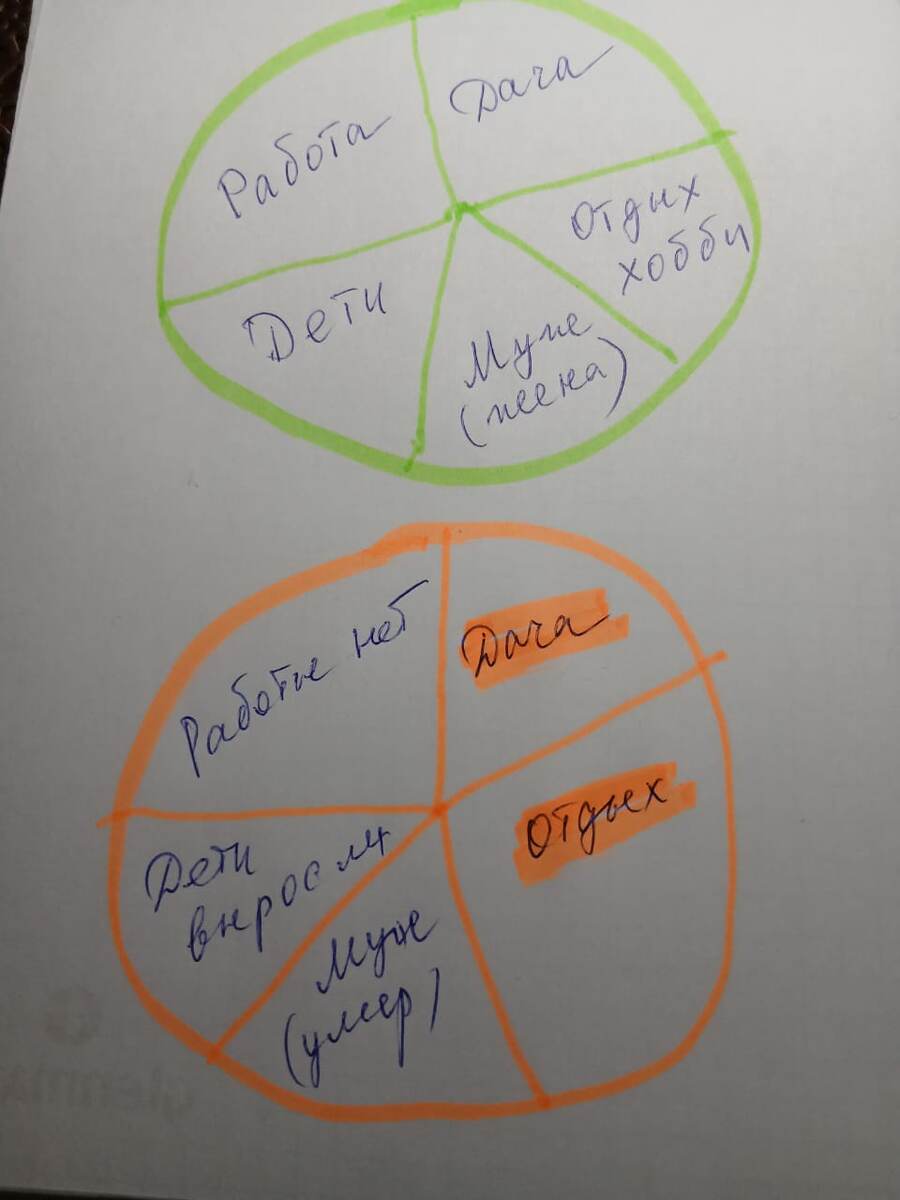 Работа
Дача
Отдых
хобби
Дети
Муж
(жена)
Работы нет
Дача
Отдых
Дети
выросли
Муж
(умер)